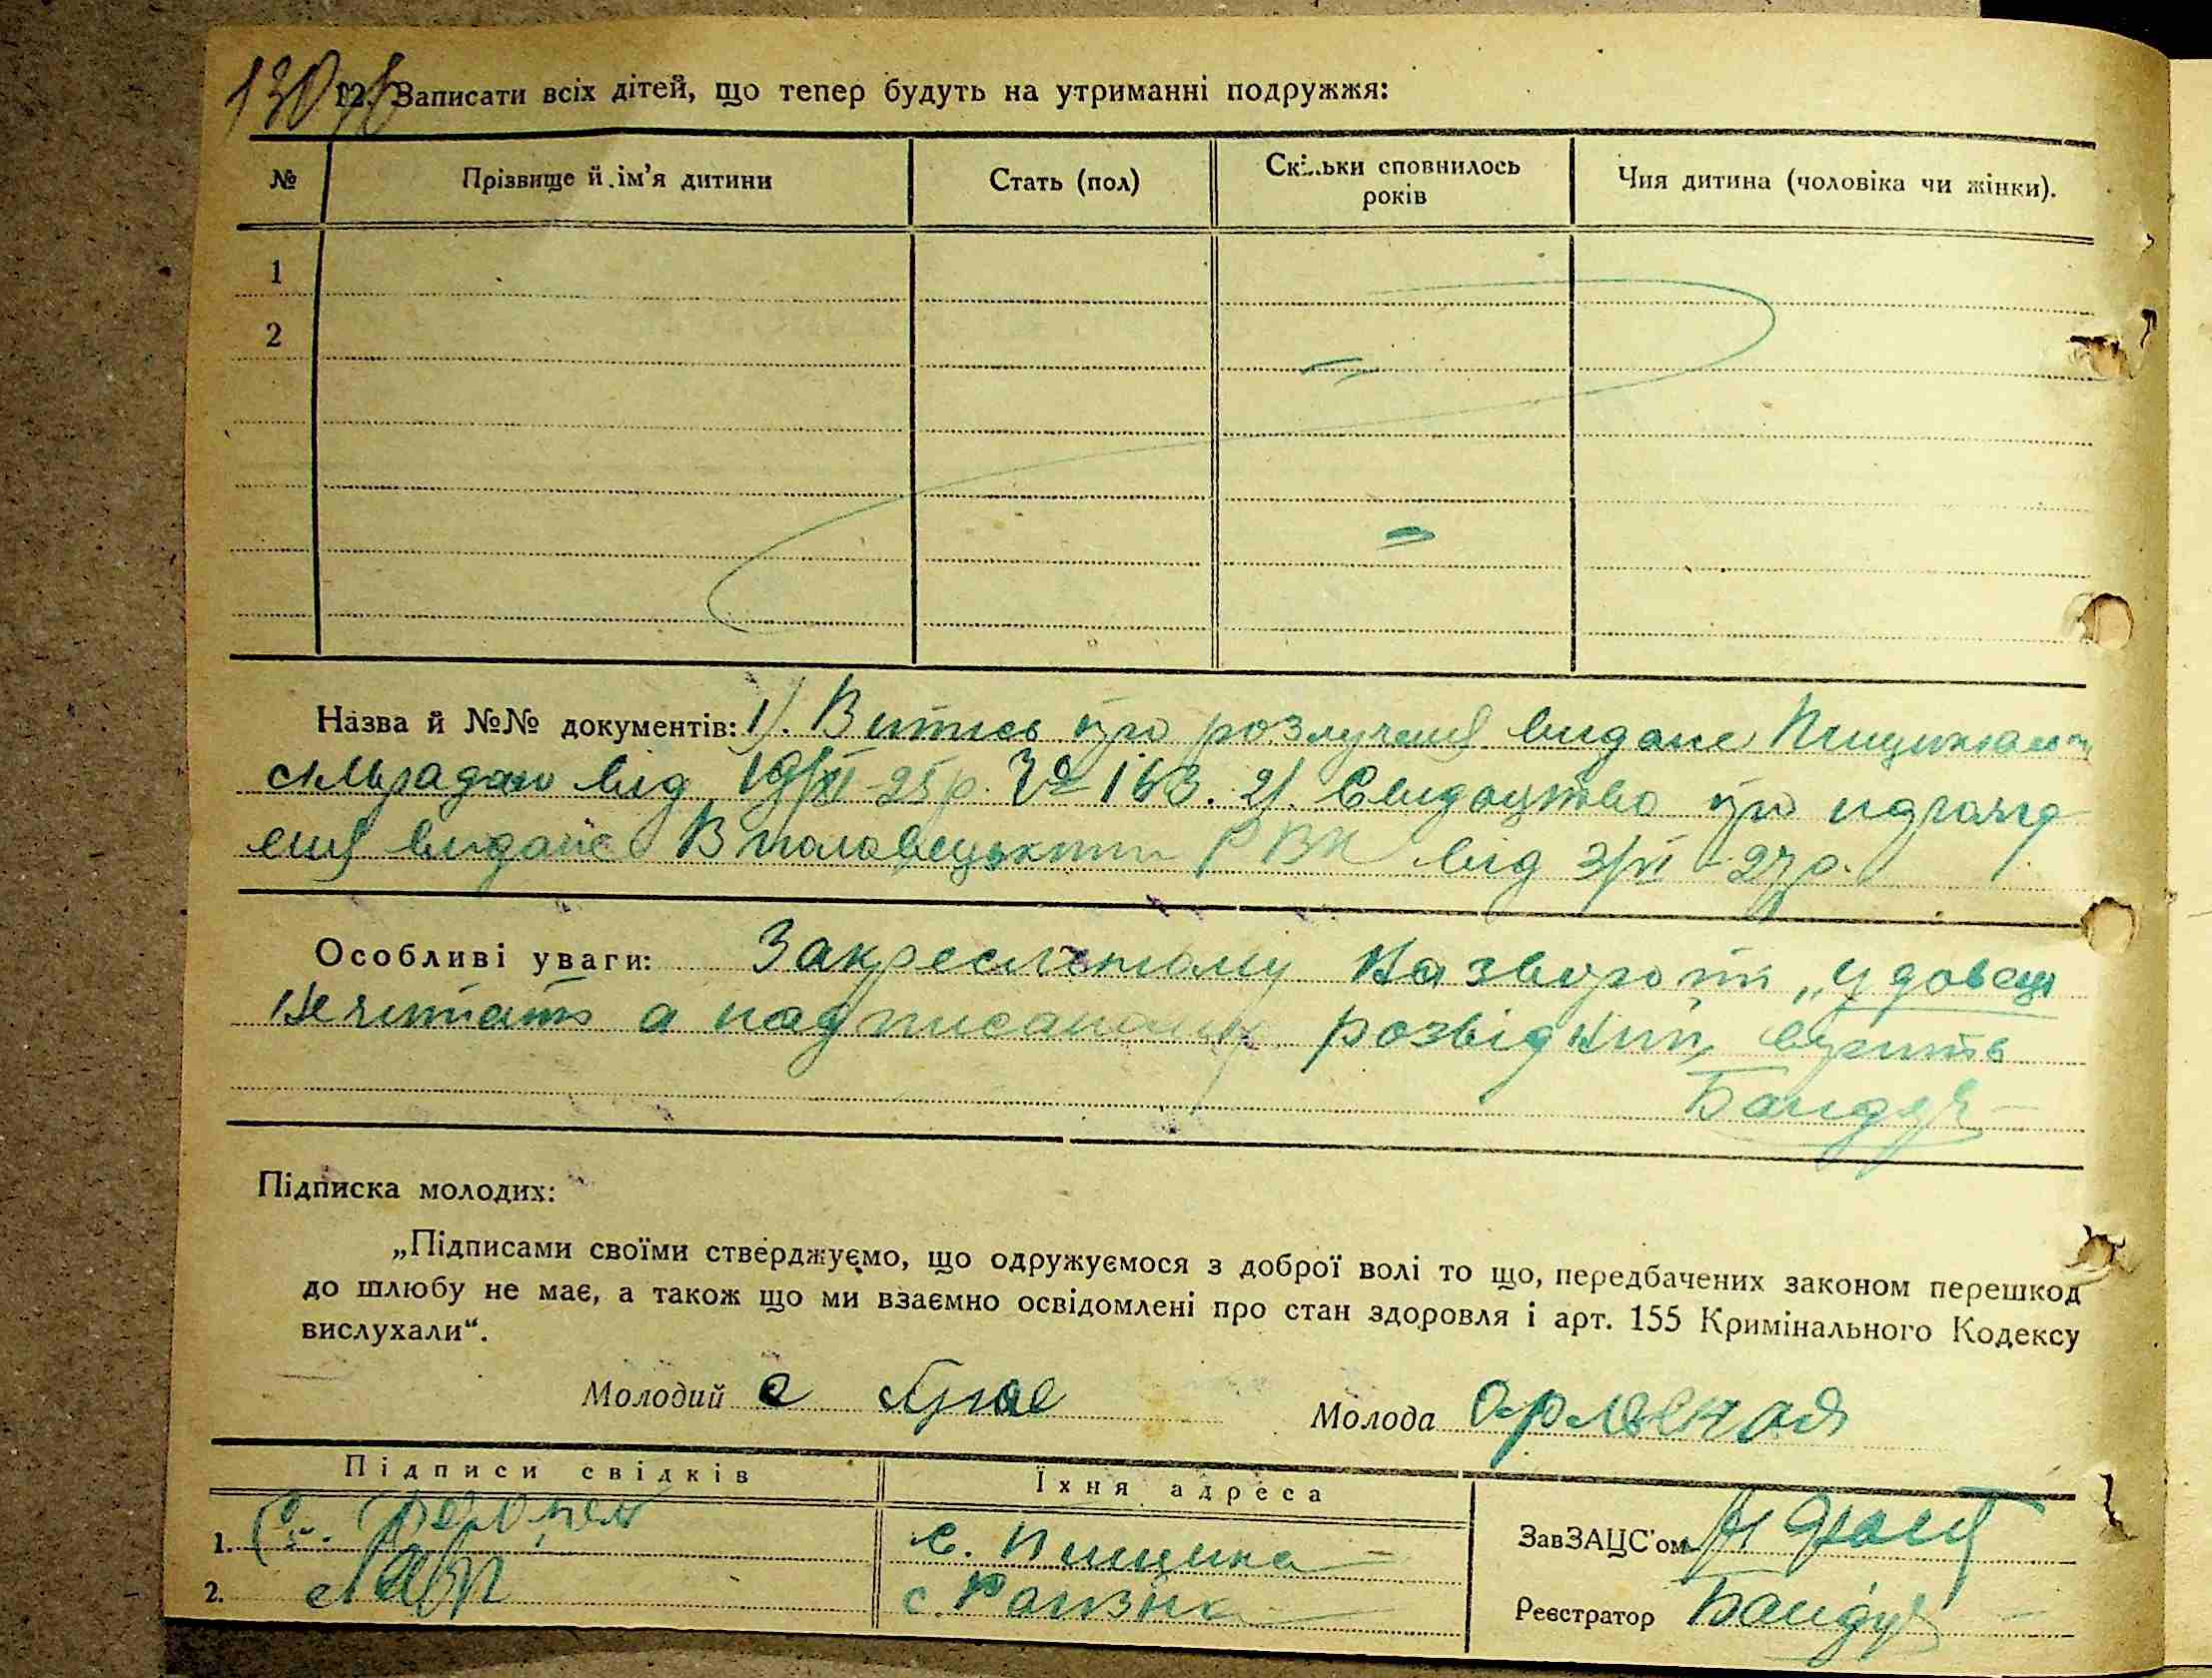 12. Записати всіх дітей, що тепер будуть на утриманні подружжя:
№ Прізвище й ім’я дитини Стать (пол) Скільки сповнилось років Чия дитина (чоловіка чи жінки).
1
2
Назва й №№ документів: 1). Витись про розлучения видане
від 19/XI-25 р. № 163. 2). Свидоцтво про
видане В РВК від 3/VI-27р.
Особливі уваги: Закресленому На звороті „удовец
Не читать а надписаному розвідний вчить
Бандур
Підписка молодих:
„Підписами своїми стверджуємо, що одружуємося з доброї волі то що, передбачених законом перешкод
до шлюбу не має, а також що ми взаємно освідомлені про стан здоровля і арт. 155 Кримінального Кодексу
вислухали“.
Молодий Молода
Підписи свідків Їхня адреса
1. с. Пищика ЗавЗАЦС'ом
2. с. Реєстратор Бандур